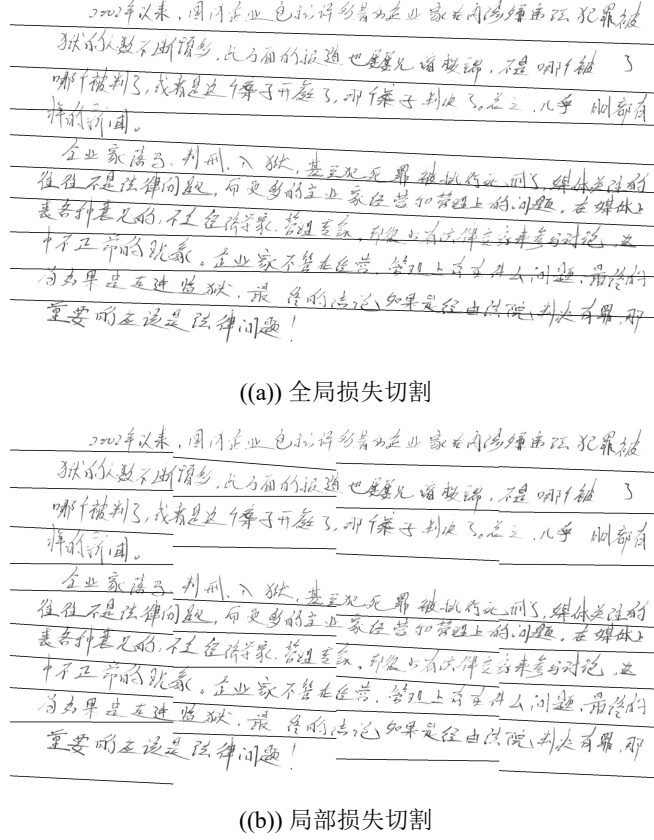 2002年以来，国内企业包括许多著名企业家在内涉嫌违法犯罪被
狱的人数不断增多，此方面的报道也屡屡见诸报端，不是哪个被 了
哪个被判了，或者是这个案子开庭了，那个案子判决了。总之，几乎 都有
样的新闻。
企业家落马、判刑、入狱，甚至犯死罪被执行死刑了，媒体关注的
往往不是法律问题，而更多的企业家经营和管理上的问题。在媒体上
表各种意见的，不是经济学家、管理专家，却很少有法律专家来参与讨论，这
中不正常的现象。企业家不管在经营、管理上有多什么问题，最终的
为如果是在进监狱，最终的结论如果是经由法院判决有罪，那
重要的应该是法律问题！
((a)) 全局损失切割
2002年以来，国内企业包括许多著名企业家在内涉嫌违法犯罪被
狱的人数不断增多，此方面的报道也屡屡见诸报端，不是哪个被 了
哪个被判了，或者是这个案子开庭了，那个案子判决了。总之，几乎 都有
样的新闻。
企业家落马、判刑、入狱，甚至犯死罪被执行死刑了，媒体关注的
往往不是法律问题，而更多的企业家经营和管理上的问题。在媒体上
表各种意见的，不是经济学家、管理专家，却很少有法律专家来参与讨论，这
中不正常的现象。企业家不管在经营、管理上有多什么问题，最终的
为如果是在进监狱，最终的结论如果是经由法院判决有罪，那
重要的应该是法律问题！
((b)) 局部损失切割